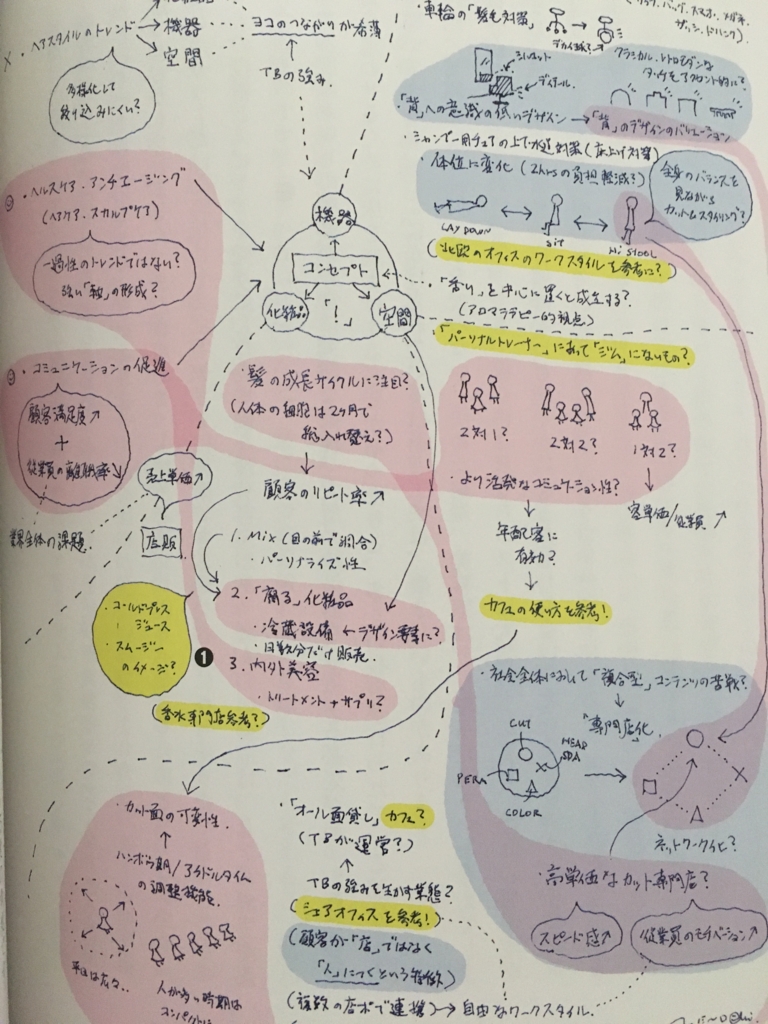 ・ヘアスタイルのトレンド→機器
空間
ヨコのつながりが希薄
TBの強み
多様化して
絞り込みにくい?
・車輪の「髪毛対策」
デカイ球?
シルエット
ディテール
クラシカル、レトロモダンな
「背」への意識の低いデザイン→「背」のデザインのバリエーション
・シャンプー用チェアの上下水道対策(床上げ対策)
・体位に変化(2hrsの負担軽減?)
LAY DOWN
sit
Hi STOOL
全身のバランスを
見ながら
カット&スタイリング?
(北欧のオフィスのワークスタイルを参考に?)
・ヘルスケア・アンチエージング
(ヘアケア・スカルプケア)
一過性のトレンドではない?
強い「軸」の形成?
機器
コンセプト
化粧品
「!」
空間
・「香り」を中心に置くと成立する?
(アロマテラピー的視点)
・「パーソナルトレーナー」にあって「ジム」にないもの?
・コミュニケーションの促進
顧客満足度↗
+
従業員の離職率↘
業界全体の課題
売上単価↗
店販
・髪の成長サイクルに注目?
(人体の細胞は2ヶ月で
総入れ替え?)
顧客のリピート率↗
2対1?
2対2?
1対2?
・より活発なコミュニケーション性?
客単価/従業員↗
年配客に
有効?
カフェの使い方を参考!
1. Mix(目の前で調合)
・パーソナライズ性
2.「腐る」化粧品
・冷蔵設備←デザイン要素に?
・日数分だけ販売
3. 内外美容
・トリートメント+サプリ?
・コールドプレス
ジュース
・スムージー
のイメージ?
❶
(香水専門店参考?)
・社会全体において「複合型」コンテンツの苦戦?
「専門店化」
CUT
HEAD
SPA
PERA
COLOR
ネットワーク化?
・高単価なカット専門店?
スピード感↗
従業員のモチベーション↗
・カット面の可変性
ハンボウ期/アイドルタイム
の調整機能
平日は広々..
人が多い時期は
コンパクトに
・「オール面貸し」カフェ?
(TBが運営?)
TBの強みを生かす業態?
(シェアオフィスを参考!)
(顧客が「店」ではなく
「人」につくという特徴)
(複数の店舗で連携)→自由なワークスタイル